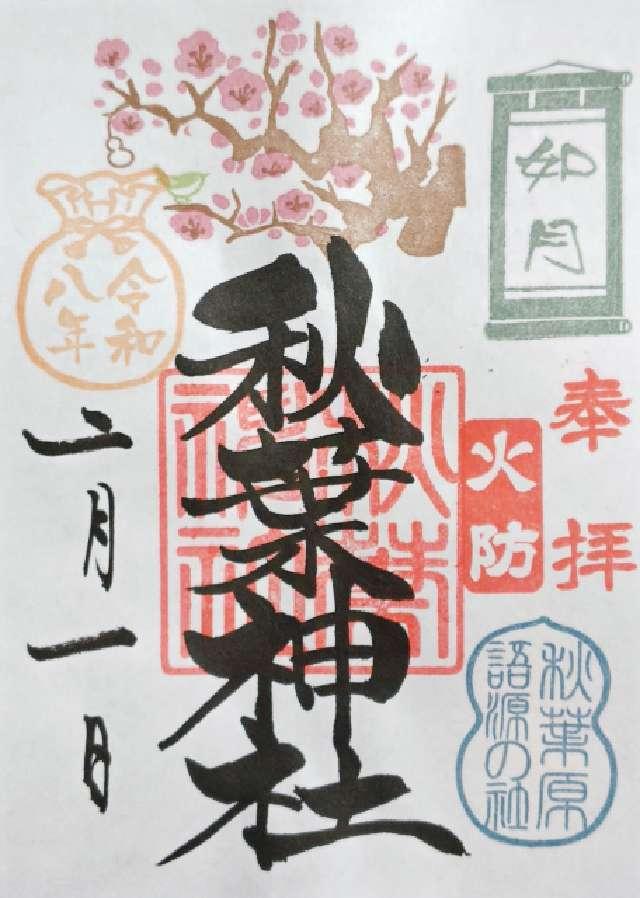 如月
奉拝
火防
秋葉原
語源の社
秋葉神社
令和
八年
二月一日